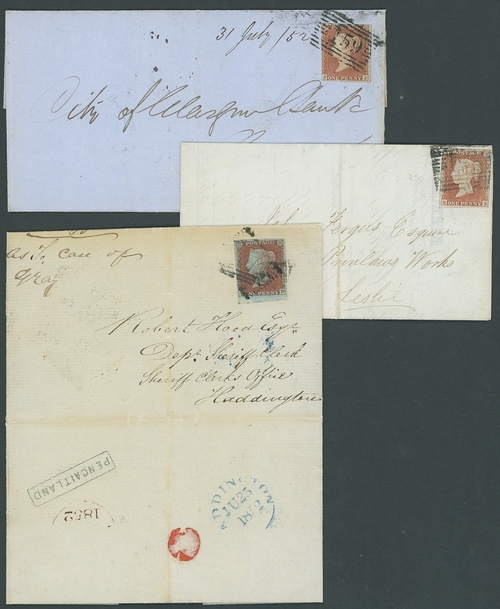 31 July /52
159
ONE PENNY
City of Glasgow Bank
ONE PENNY
Fergus Esquire
Works
Leslie
as To. case of
Gray
POSTAGE
Robert Hood Esqr
Dept Sheriff Clerk
Sheriff Clerk's Office
Haddington
PENCAITLAND
1852
DDINGTON
JU 25
1852